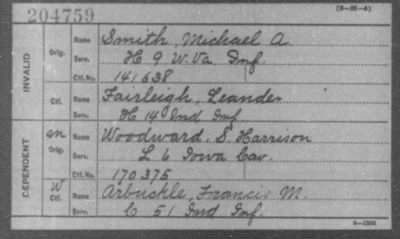 204759
(3-22-4)
INVALID
Orig. Name Smith, Michael A.
Serv. H 9 W. Va. Inf.
Ctf. No. 141638
Ctf. Name Fairleigh, Leander
Serv. H 14 Ind Inf
DEPENDENT
Orig. Name Woodward, S. Harrison
Serv. L 6 Iowa Cav.
Ctf. No. 170375
W
Ctf. Name Arbuckle, Francis M.
Serv. C 51 Ind Inf.